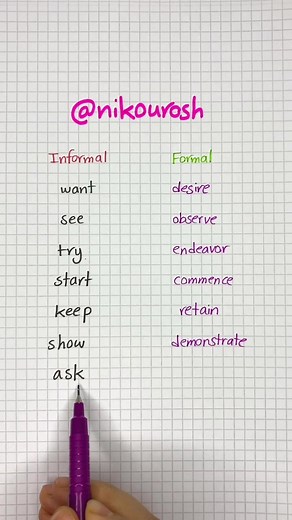 @nikourosh
Informal Formal
want desire
see observe
try endeavor
start commence
keep retain
show demonstrate
ask